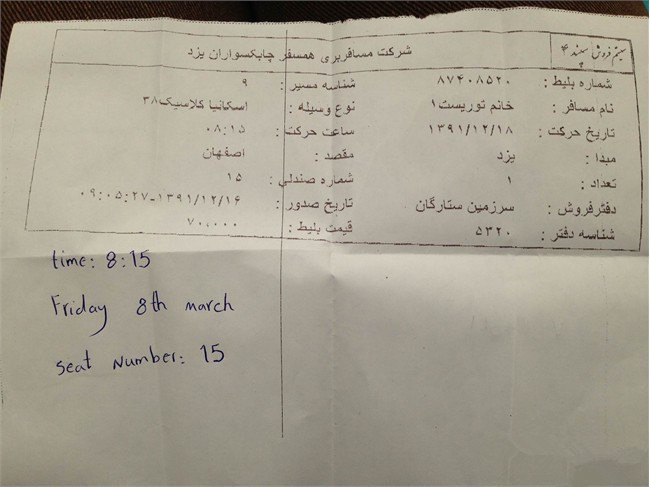 سیستم فروش سپند ۴
شرکت مسافربری همسفر چابکسواران یزد
شماره بلیط : ۸۷۴۰۸۵۲۰ شناسه مسیر : ۹
نام مسافر : خانم توریست۱ نوع وسیله : اسکانیا کلاسیک۳۸
تاریخ حرکت : ۱۳۹۱/۱۲/۱۸ ساعت حرکت : ۰۸:۱۵
مبدا : یزد مقصد : اصفهان
تعداد : ۱ شماره صندلي : ۱۵
دفترفروش : سرزمین ستارگان تاریخ صدور : ۱۳۹۱/۱۲/۱۶-۰۹:۰۵:۲۷
شناسه دفتر : ۵۳۲۰ قیمت بلیط : ۷۰,۰۰۰
time: 8:15
Friday 8th march
seat Number: 15